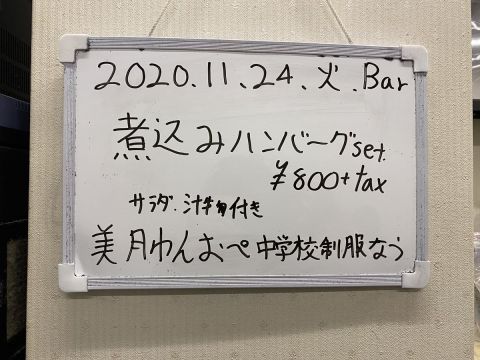 2020.11.24.火.Bar
煮込みハンバーグset.
¥800+tax
サラダ.汁物付き
美月わんおぺ中学校制服なう